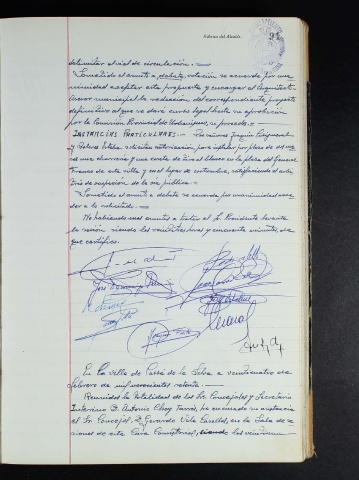 Rúbrica del Alcalde,
91
delimitar el vial de circulación. —
Sometido el asunto a debate, votación se acuerda por una
nimidad aceptar esta propuesta y encargar al Arquitecto
Asesor municipal la redacción del correspondiente proyecto
definitivo al que se dará curso legal hasta su aprobación
por la Comisión Provincial de Urbanismo, si procede. —
INSTANCIAS PARTICULARES. - Los señores Joaquín
y solicitan autorización para instalar por plazo de
una churrería y una caseta de tiro al blanco en la plaza del General
Franco de esta villa y en el lugar de costumbre, satisfaciendo el arbi
trio de ocupación de la vía pública. —
Sometido el asunto a debate se acuerda por unanimidad acce
der a lo solicitado. —
No habiendo más asuntos a tratar el Sr. Presidente levanta
la sesión siendo las veintidós horas y cincuenta minutos, de
que certifico.
En la villa de Cassá de la Selva a veinticuatro de
febrero de mil novecientos setenta. —
Reunidos la totalidad de los Sr. Concejales y Secretario
Interino D. Antonio Chey Tarrés, se excusado su asistencia
el Sr. Concejal D. Gerardo Vila Carellas, en la Sala de se
siones de esta Casa Consistorial, siendo las